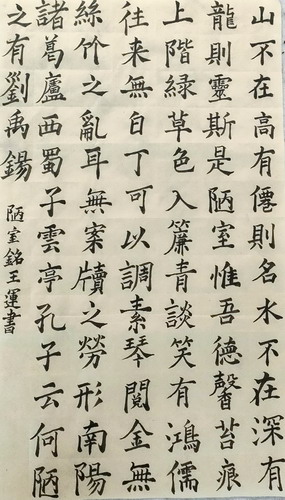 山不在高有僊則名水不在深有
龍則靈斯是陋室惟吾德馨苔痕
上階緑草色入簾青談笑有鴻儒
往来無白丁可以調素琴閱金無
絲竹之亂耳無案牘之勞形南陽
諸葛廬西蜀子雲亭孔子云何陋
之有劉禹錫
陋室銘王運書